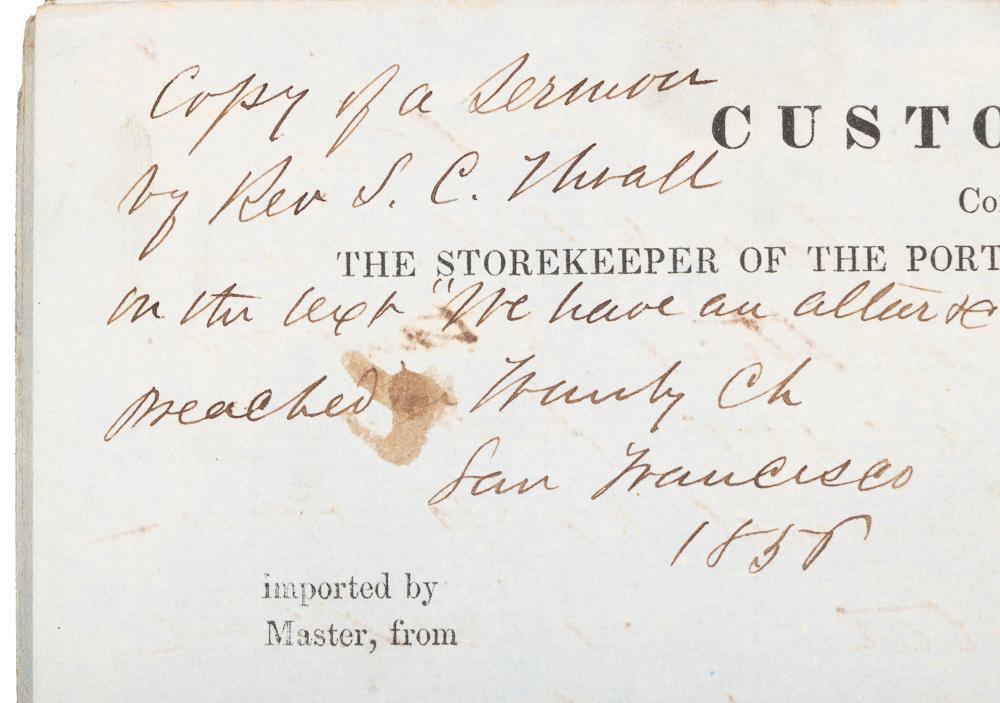 Copy of a Sermon
CUSTO
by Rev S. C. Thrall
Co
THE STOREKEEPER OF THE PORT
on the text "We have an altar &c
preached in Trinity Ch
San Francisco
1858
imported by
Master, from